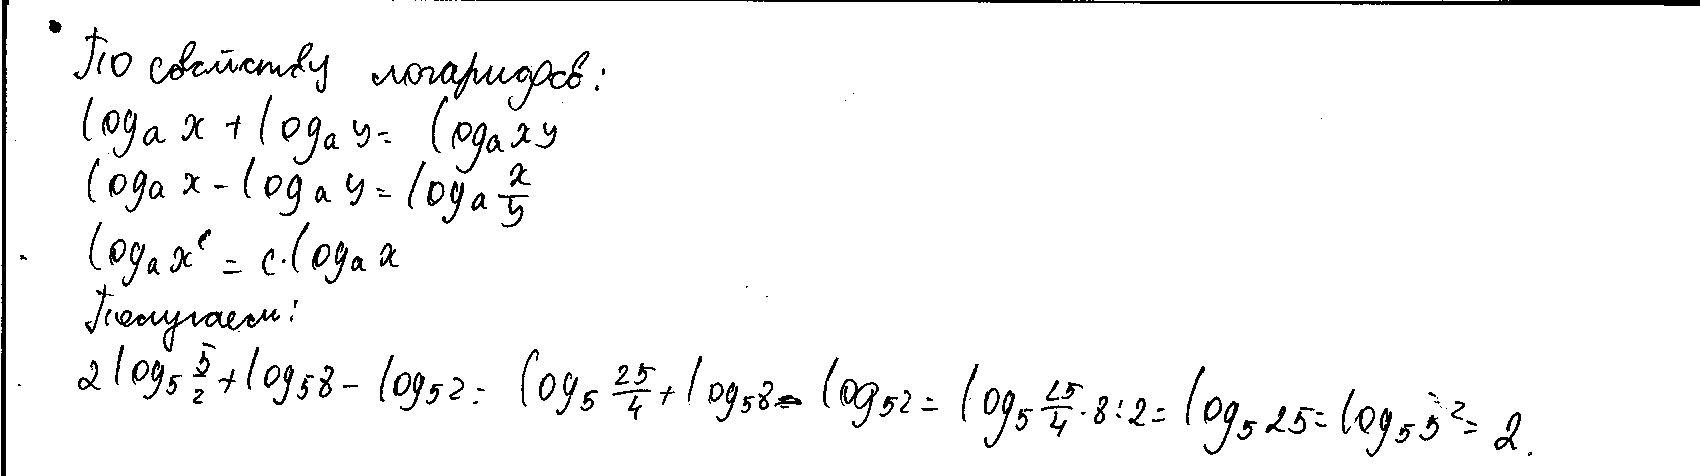 По свойству логарифов:
log_a x + log_a y = log_a xy
log_a x - log_a y = log_a x/y
log_a x^c = c·log_a x
Получаем:
2 log_5 5/2 + log_5 8 - log_5 2 = log_5 25/4 + log_5 8 - log_5 2 = log_5 25/4 · 8 : 2 = log_5 25 = log_5 5^2 = 2.